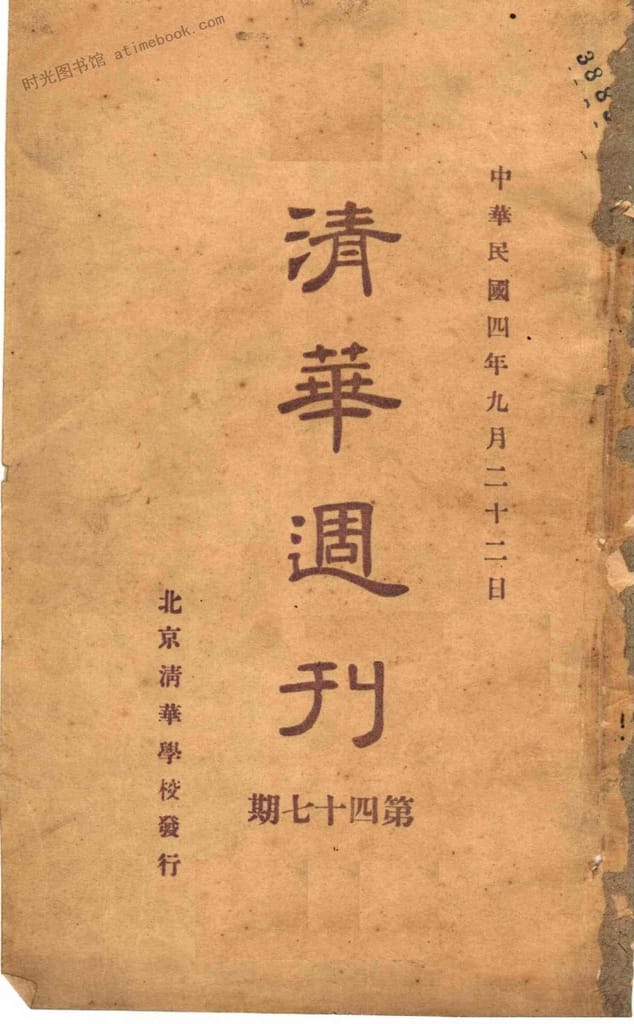 时光图书馆 atimebook.com
中華民國四年九月二十二日
清華週刊
第四十七期
北京清華學校發行